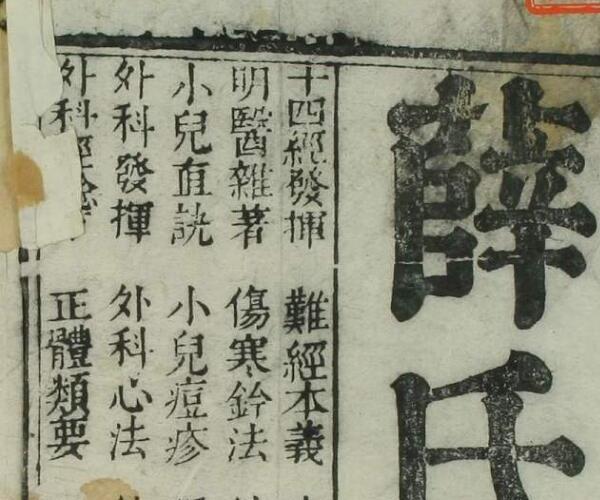 薛氏
十四經發揮 難經本義
明醫雜著 傷寒鈐法
小兒直訣 小兒痘疹
外科發揮 外科心法
外科經驗 正體類要